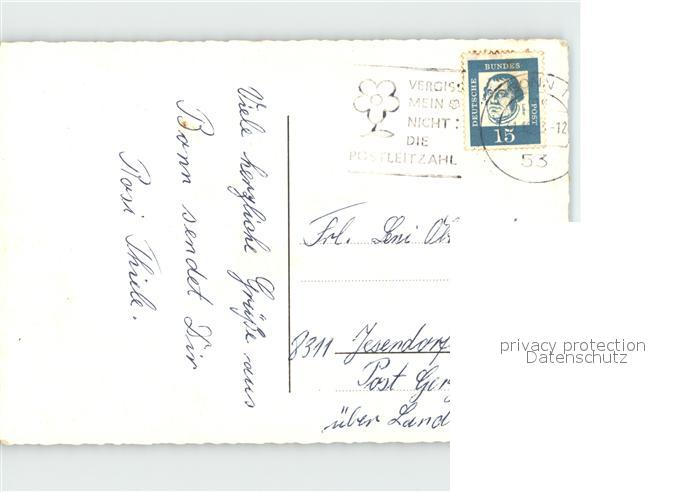 Viele herzliche Grüße aus
Bonn sendet Dir
Rosi Thiele.
VERGISS
MEIN
NICHT:
DIE
POSTLEITZAHL
DEUTSCHE BUNDES POST
15
53
Frl. Leni
8311 Jesendorf
Post
über Land
privacy protection
Datenschutz